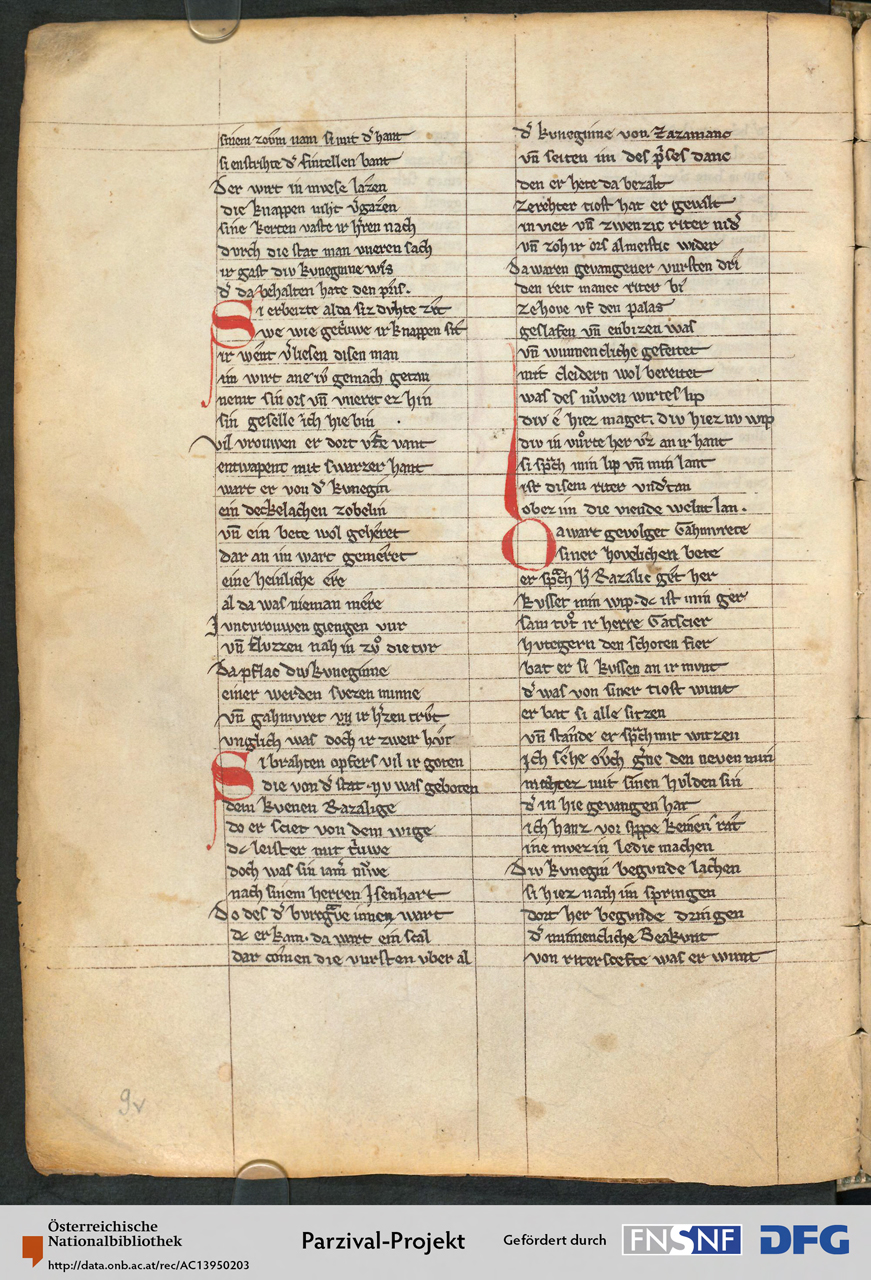 sinem zoum nam si mit d͛ hant
si enstrihte d͛ fintellen bant
Der wirt in mvese lazen
die knappen niht v͛gazen
sine kerten vaste ir h͛ren nach
dvrch die stat man vueren sach
ir gast div kvneginne wis
d͛ da behalten hate den pris.
Si erbeizte alda siz dvhte zit
Swe wie get͛uwe ir knappen sit
ir went v͛liesen disen man
im wirt ane iv gemach getan
nemt sin ors vn̄ vueret ez hin
sin geselle ich hie bin
Vil vrouwen er dort vant
entwapent mit swarzer hant
wart er von d͛ kvnegin
ein deckelachen zobelin
vn̄ ein bete wol geheret
dar an im wart gemeret
eine heinliche ere
al da was nieman mere
Ivncvrouwen giengen vur
vn̄ slvzzen nah in zvͦ die tvr
Da pflac div kvneginne
einer werden svezen minne
vn̄ gahmvret ir h͛zen trvt
vnglich was doch ir zweir hvt
Si brahten opfers vil ir goten
die von d͛ stat. nv was geboten
dem kvenen Razalige
do er sciet von dem wige
dc leister mit t͛uwe
doch was sin iam͛ nvͦwe
nach sinem herren Isenhart
Do des d͛ burcgᵃve innen wart
dc er kam. da wart ein scal
dar comen die vursten vber al
d͛ kvneginne von Zazamanc
vn̄ seiten im des p͛ses danc
den er hete da bezalt
zerehter tiost hat er gevalt
in vier vn̄ zwenzic riter nid͛
vn̄ zoh ir ors almeistic wider
Da waren gevangener vursten dri
den reit manec riter bi
ze hove vf den palas
geslafen vn̄ enbizen was
vn̄ wunnencliche gefeitet
mit cleidern wol bereitet
was des nvͦwen wirtes lip
div e hiez maget. div hiez nv wip
div in vuͦrte her vz an ir hant
si sp͛ch min lip vn̄ min lant
ist disem riter vnd͛tan
obez im die viende welnt lan.
Da wart gevolget Gahmvrete
siner hovelichen bete
er sp͛ch h͛ Razalic get her
kvsset min wip. dc ist min ger
sam tvͦt ir herre Gatscier
hvtegern den schoten fier
bat er si kvssen an ir mvnt
d͛ was von siner tiost wunt
er bat si alle sitzen
vn̄ stande er sp͛ch mit witzen
Ich sehe ovch g͛ne den neven min
mohtez mit sinen hvlden sin
d͛ in hie gevangen hat
ich hanz vor sippe keinen rat
ine mvez in ledic machen
Div kvnegin begvnde lachen
si hiez nach im springen
dort her begvnde dringen
d͛ minnencliche Beakvnt
von riterscefte was er wunt
9v
Österreichische
Nationalbibliothek
http://data.onb.ac.at/rec/AC13950203
Parzival-Projekt
Gefördert durch
FNSNF
DFG